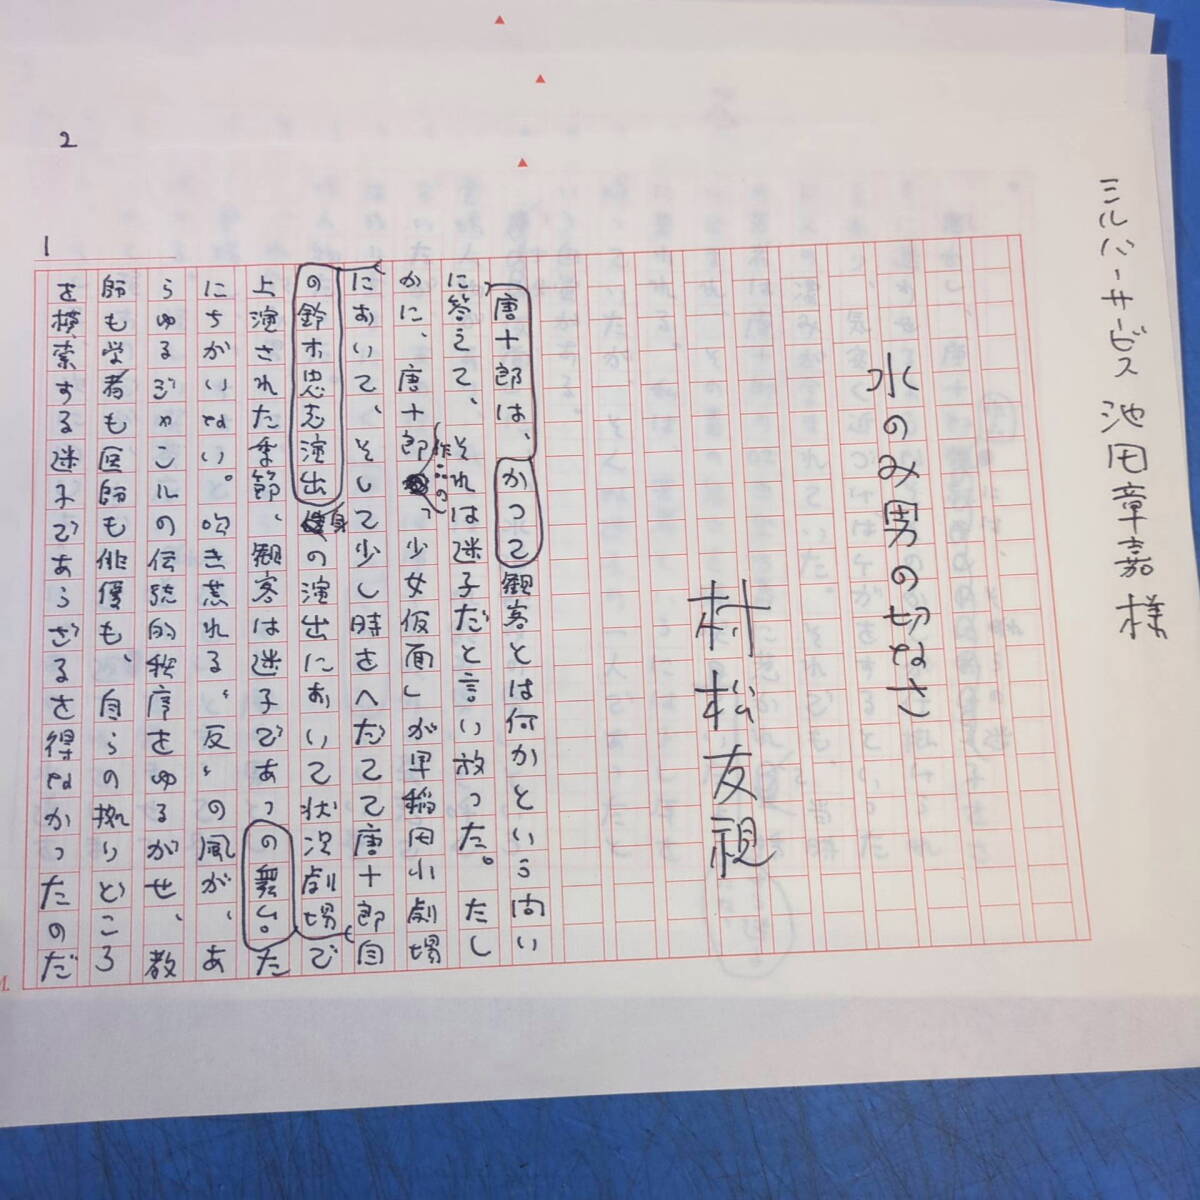 ミルバーサービス 池田章嘉様
水のみ男の切なさ
村松友視
唐十郎は、かつて観客とは何かという問い
に答えて、それは迷子だと言い放った。たし
かに、唐十郎作の「少女仮面」が早稲田小劇場
において、そして少し時をへだてて唐十郎自
の鈴木忠志演出身の演出において状況劇場で
上演された季節、観客は迷子であっの舞い。た
にちがいない。吹き荒れる〝反〟の風が、あ
らゆるジャンルの伝統的秩序をゆるがせ、教
師も学者も医師も俳優も、自らの拠りどころ
を模索する迷子であらざるを得なかったのだ
1
2